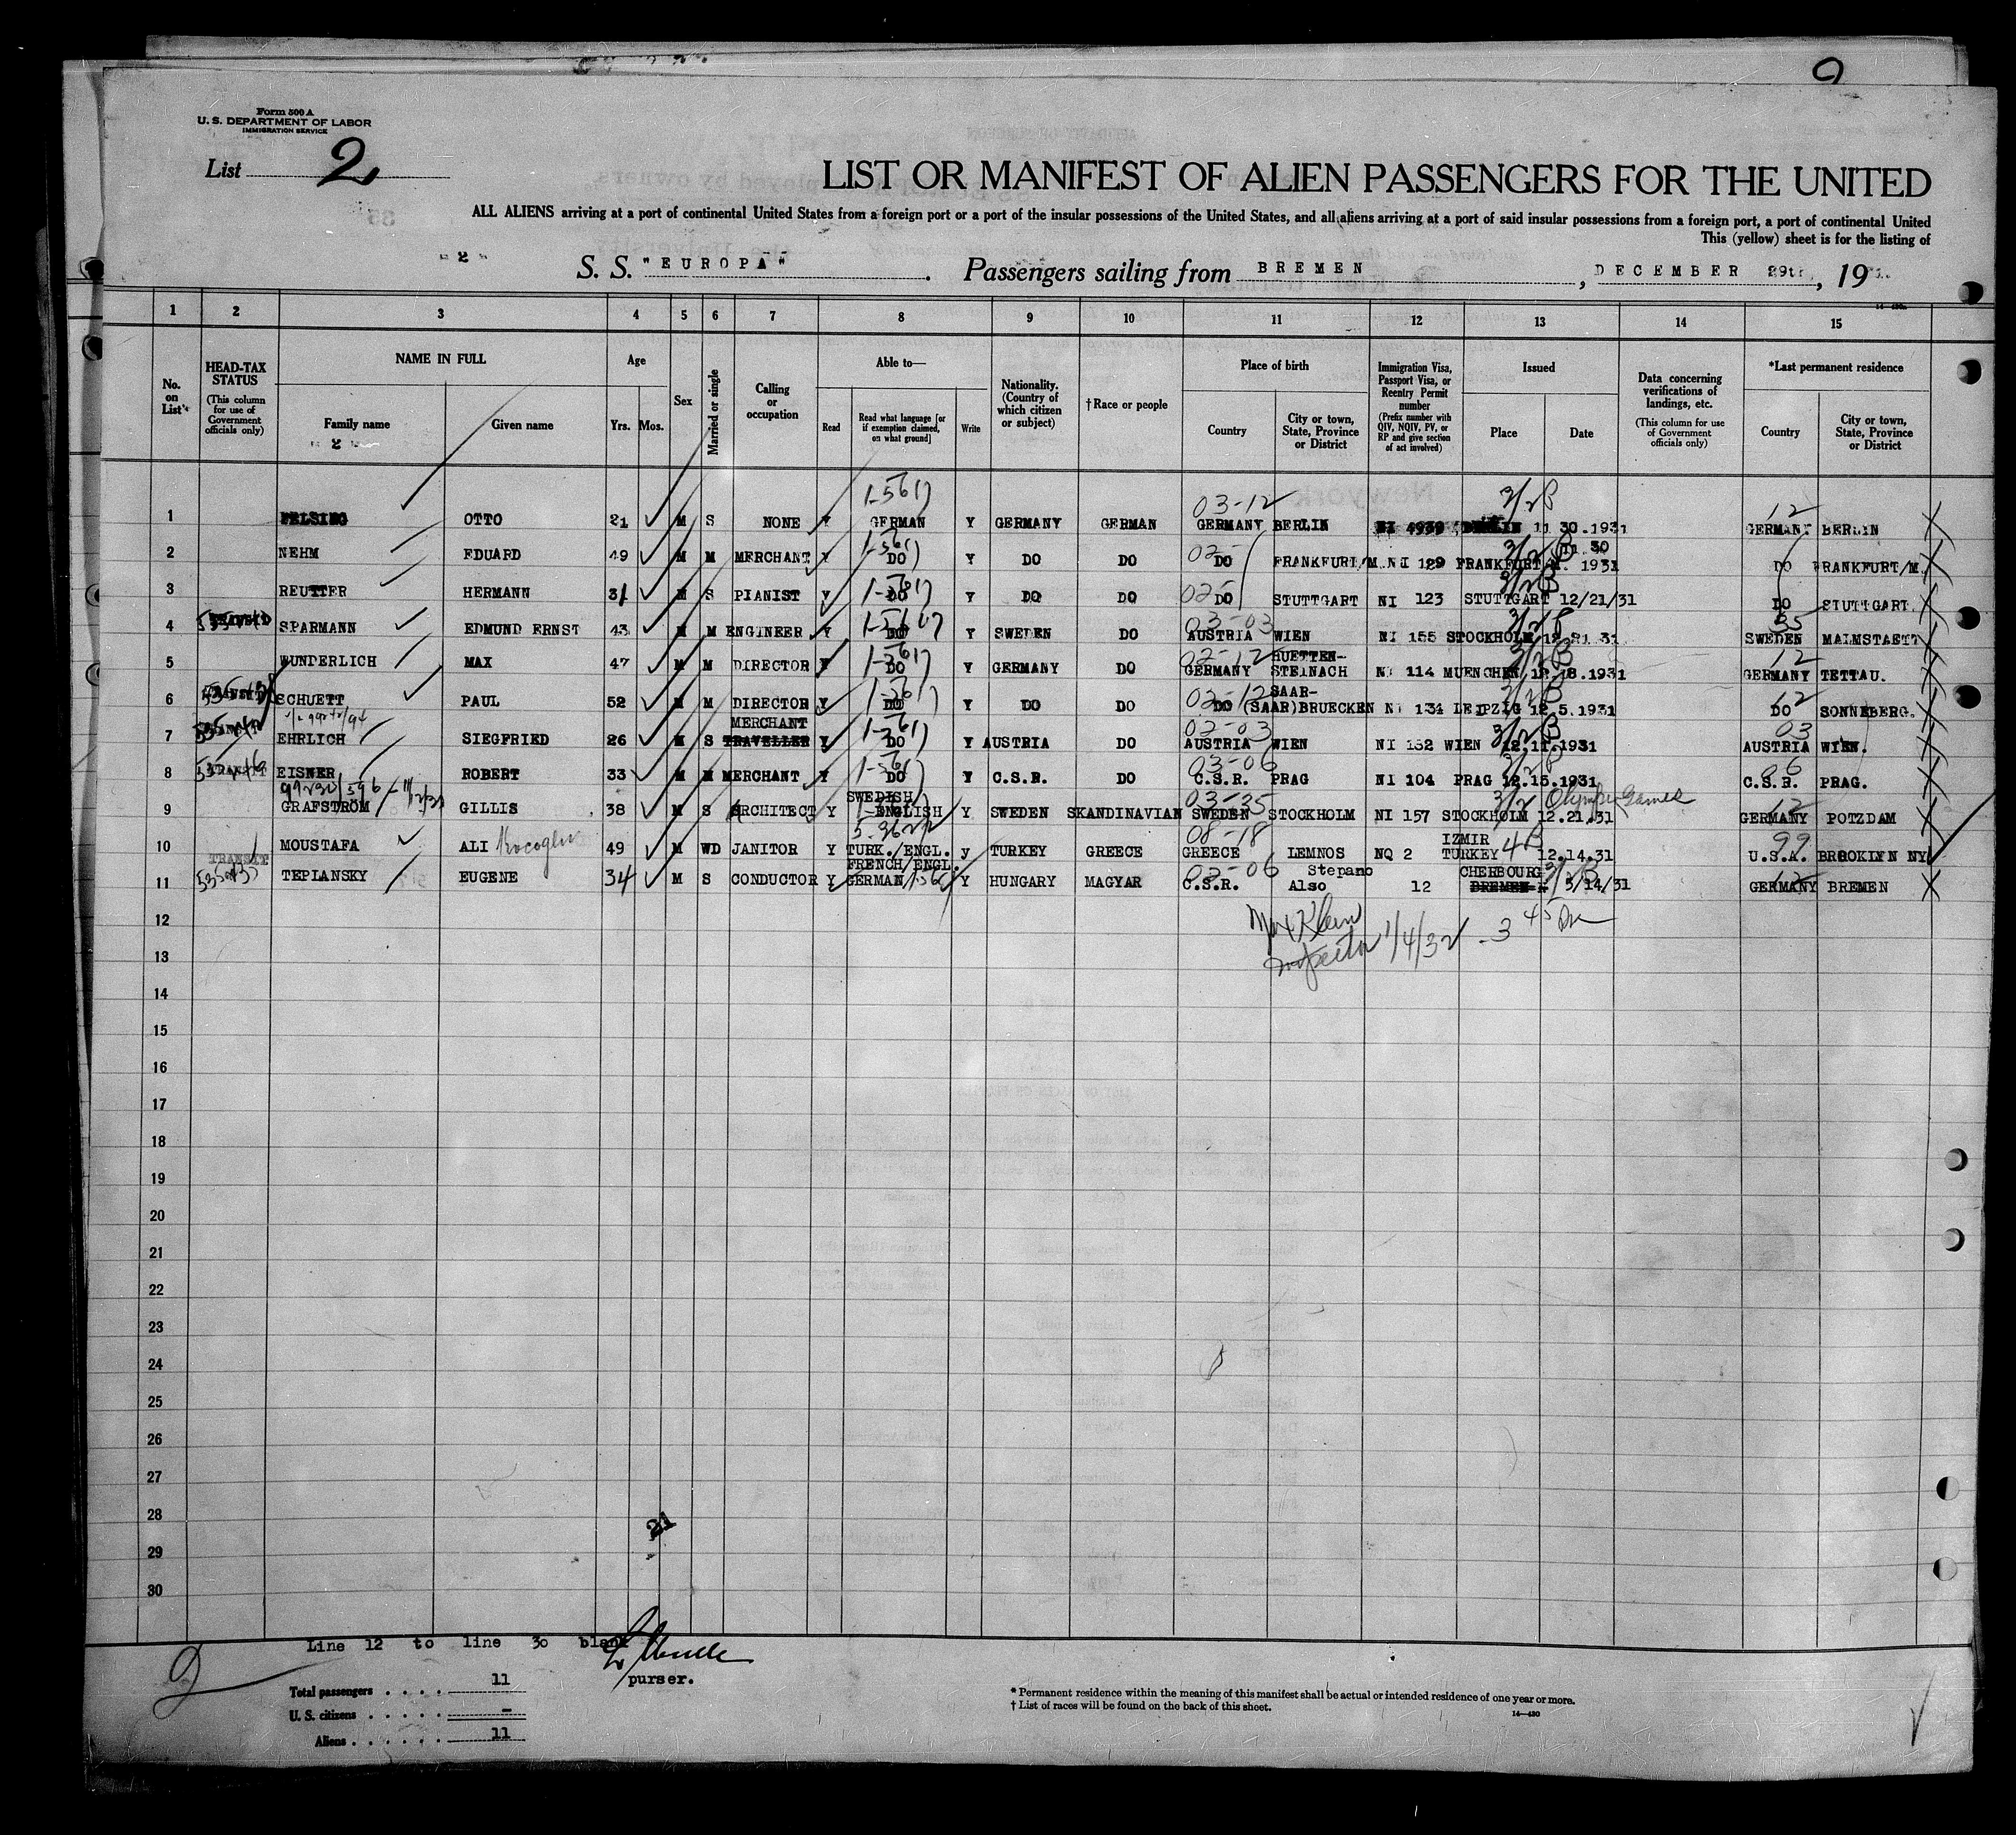 Form 500 A
U. S. DEPARTMENT OF LABOR
IMMIGRATION SERVICE
List 2
LIST OR MANIFEST OF ALIEN PASSENGERS FOR THE UNITED
ALL ALIENS arriving at a port of continental United States from a foreign port or a port of the insular possessions of the United States, and all aliens arriving at a port of said insular possessions from a foreign port, a port of continental United
This (yellow) sheet is for the listing of
- 2 -
S. S. "EUROPA". Passengers sailing from BREMEN, DECEMBER 29th, 19
1 2 3 4 5 6 7 8 9 10 11 12 13 14 15
No. on List
HEAD-TAX STATUS (This column for use of Government officials only)
NAME IN FULL
Family name
- 2 -
Given name
Age
Yrs. Mos.
Sex
Married or single
Calling or occupation
Able to—
Read
Read what language [or if exemption claimed, on what ground]
Write
Nationality. (Country of which citizen or subject)
† Race or people
Place of birth
Country
City or town, State, Province or District
Immigration Visa, Passport Visa, or Reentry Permit number (Prefix number with QIV, NQIV, PV, or RP and give section of act involved)
Issued
Place
Date
Data concerning verifications of landings, etc. (This column for use of Government officials only)
*Last permanent residence
Country
City or town, State, Province or District
1 FELSING OTTO 21 M S NONE Y GERMAN Y GERMANY GERMAN GERMANY BERLIN NI 4939 BERLIN 11 30.1931 GERMANY BERLIN
2 NEHM EDUARD 49 M M MERCHANT Y DO Y DO DO DO FRANKFURT/M. NI 129 FRANKFURT M. 11 30 1931 DO FRANKFURT/M.
3 REUTTER HERMANN 31 M S PIANIST Y DO Y DO DO DO STUTTGART NI 123 STUTTGART 12/21/31 DO STUTTGART.
4 SPARMANN EDMUND ERNST 43 M M ENGINEER Y DO Y SWEDEN DO AUSTRIA WIEN NI 155 STOCKHOLM 12.21 31 SWEDEN MALMSTAETT
5 WUNDERLICH MAX 47 M M DIRECTOR Y DO Y GERMANY DO GERMANY HUETTEN-STEINACH NI 114 MUENCHEN 12.18.1931 GERMANY TETTAU.
6 SCHUETT PAUL 52 M M DIRECTOR Y DO Y DO DO DO (SAAR) SAAR-BRUECKEN NI 134 LEIPZIG 12.5.1931 DO SONNEBERG.
7 EHRLICH SIEGFRIED 26 M S MERCHANT TRAVELLER Y DO Y AUSTRIA DO AUSTRIA WIEN NI 132 WIEN 12.11.1931 AUSTRIA WIEN.
8 TRANSIT EISNER ROBERT 33 M M MERCHANT Y DO Y C.S.R. DO C.S.R. PRAG NI 104 PRAG 12.15.1931 C.S.R. PRAG.
9 GRAFSTRÖM GILLIS 38 M S ARCHITECT Y SWEDISH/ ENGLISH Y SWEDEN SKANDINAVIAN SWEDEN STOCKHOLM NI 157 STOCKHOLM 12.21.31 Olympic Games GERMANY POTZDAM
10 MOUSTAFA ALI Kocoglu 49 M WD JANITOR Y TURK./ENGL. y TURKEY GREECE GREECE LEMNOS NQ 2 IZMIR TURKEY 12.14.31 U.S.A. BROOKLYN NY
11 TRANSIT TEPLANSKY EUGENE 34 M S CONDUCTOR Y FRENCH/ENGL. GERMAN Y HUNGARY MAGYAR C.S.R. Stepano Also 12 CHERBOURG BREMEN 3/14/31 GERMANY BREMEN
12 Max Klein
Inspector 1/4/32 - 3 45 Pm
13
14
15
16
17
18
19
20
21
22
23
24
25
26
27
28
29
30
21
Line 12 to line 30 blank
purser.
Total passengers . . . . 11
U. S. citizens . . . . . -
Aliens . . . . . . 11
* Permanent residence within the meaning of this manifest shall be actual or intended residence of one year or more.
† List of races will be found on the back of this sheet.
14—430